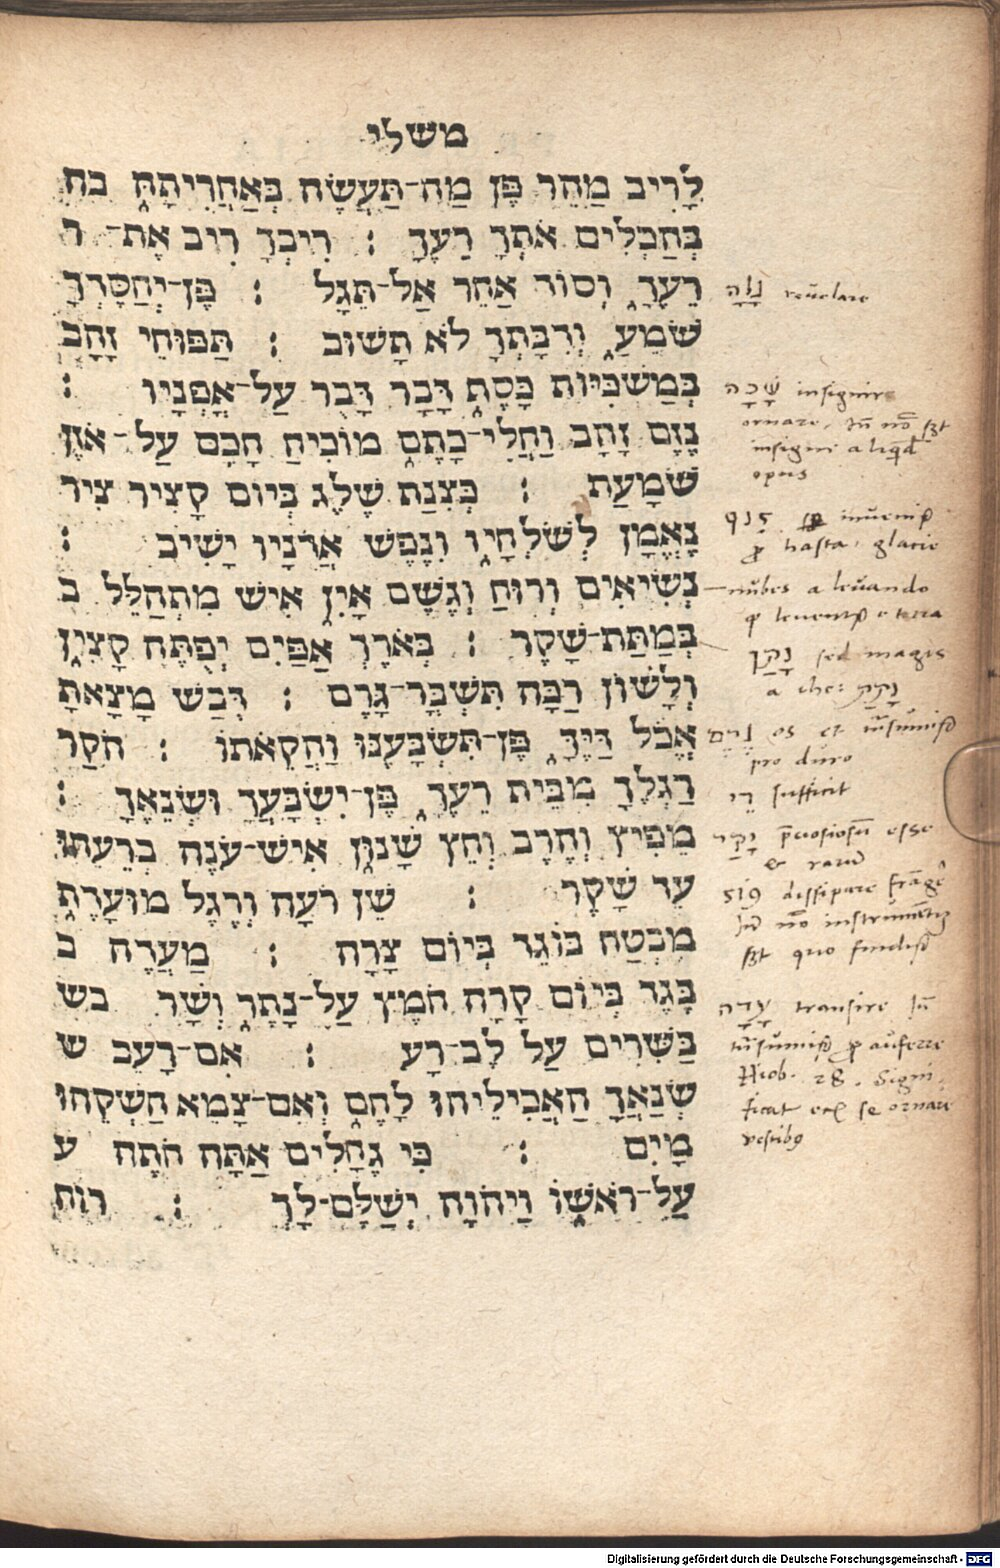 משלי
לָרִיב מַהֵר פֶּן מַה־תַּעֲשֶׂה בְּאַחֲרִיתָהּ בה
בְּהַכְלִים אֹתְךָ רֵעֶךָ : רִיבְךָ רִיב אֶת־ ר
רֵעֶךָ וְסוֹד אַחֵר אַל־תְּגָל : פֶּן־יְחַסֶּדְךָ
שֹׁמֵעַ וְדִבָּתְךָ לֹא תָשׁוּב : תַּפּוּחֵי זָהָב
בְּמַשְׂכִּיּוֹת כָּסֶף דָּבָר דָּבֻר עַל־אָפְנָיו :
נֶזֶם זָהָב וַחֲלִי־כָתֶם מוֹכִיחַ חָכָם עַל־אֹזֶן
שֹׁמָעַת : כְּצִנַּת שֶׁלֶג בְּיוֹם קָצִיר צִיר
נֶאֱמָן לְשֹׁלְחָיו וְנֶפֶשׁ אֲדֹנָיו יָשִׁיב :
נְשִׂיאִים וְרוּחַ וְגֶשֶׁם אָיִן אִישׁ מִתְהַלֵּל ב
בְּמַתַּת־שָׁקֶר : בְּאֹרֶךְ אַפַּיִם יְפֻתֶּה קָצִין
וְלָשׁוֹן רַכָּה תִּשְׁבָּר־גָּרֶם : דְּבַשׁ מָצָאתָ
אֱכֹל דַּיֶּךָּ פֶּן־תִּשְׂבָּעֶנּוּ וַהֲקֵאתוֹ : הֹקַר
רַגְלְךָ מִבֵּית רֵעֶךָ פֶּן־יִשְׂבָּעֲךָ וּשְׂנֵאֶךָ :
מֵפִיץ וְחֶרֶב וְחֵץ שָׁנוּן אִישׁ־עֹנֶה בְרֵעֵהוּ
עֵד שָׁקֶר : שֵׁן רֹעָה וְרֶגֶל מוּעָדֶת
מִבְטָח בּוֹגֵד בְּיוֹם צָרָה : מַעֲדֶה ב
בֶּגֶד בְּיוֹם קָרָה חֹמֶץ עַל־נָתֶר וְשָׁר בש
בַּשִּׁרִים עַל לֶב־רָע : אִם־רָעֵב ש
שֹׂנַאֲךָ הַאֲכִילֵיהוּ לָחֶם וְאִם־צָמֵא הַשְׁקֵהוּ
מָיִם : כִּי גֶחָלִים אַתָּה חֹתֶה ע
עַל־רֹאשׁוֹ וַיהוָה יְשַׁלֶּם־לָךְ : רוּח
גָּלָה reuelare
שָׂכָה insignire
ornare.
insigni aliquod
opus
hasta. glacie
nubes a leuando
sed magis
os et
pro duro
דַי sufficit
יָקַר esse
פוץ dissipare
עָדָה transire
auferre
Hiob. 28. Signi
ficat se ornare
Digitalisierung gefördert durch die Deutsche Forschungsgemeinschaft - DFG